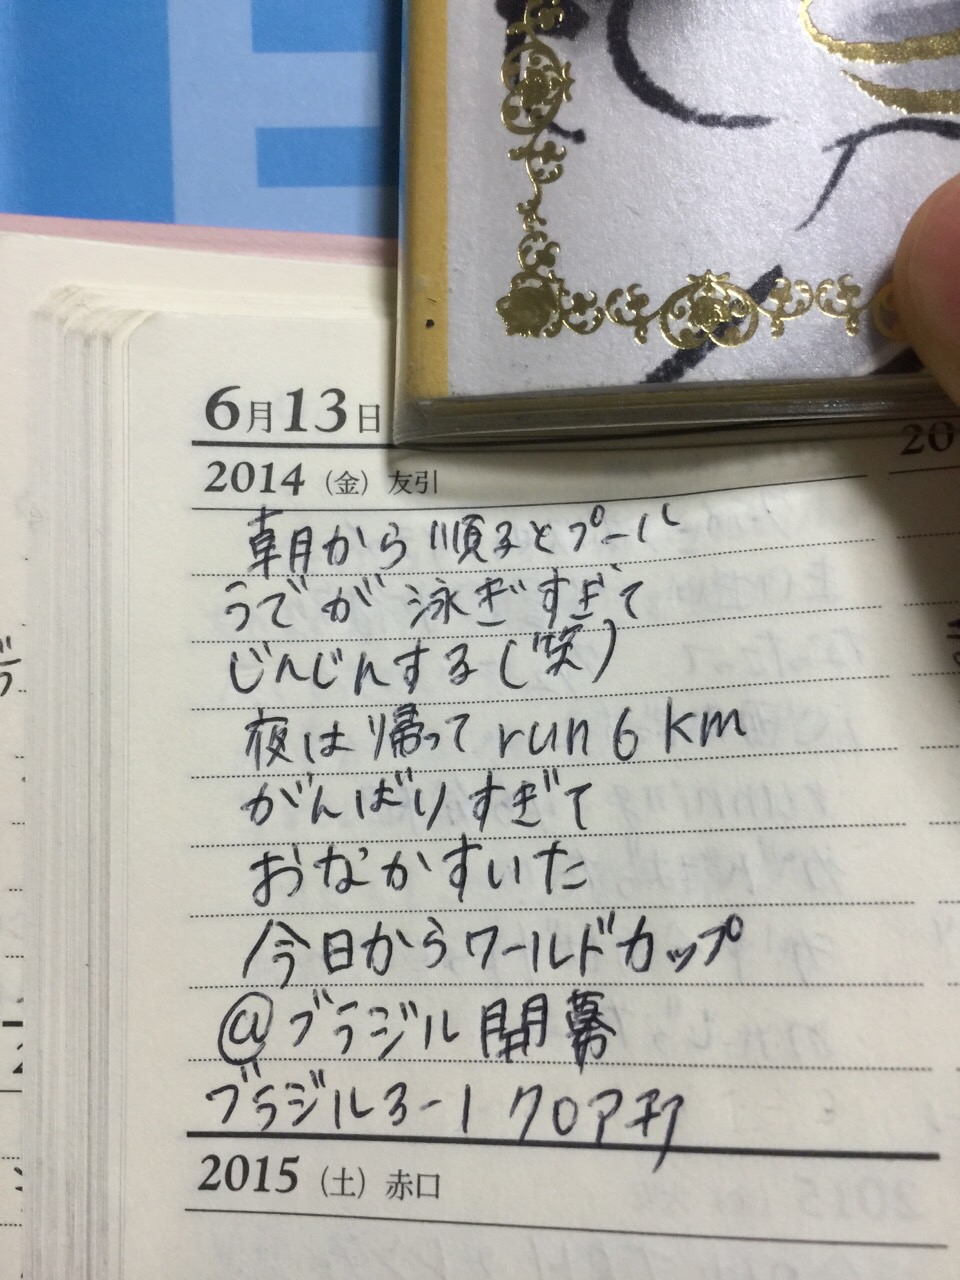 6月13日
2014 (金) 友引
朝から順子とプール
うでが泳ぎすぎて
じんじんする(笑)
夜は帰って run 6 km
がんばりすぎて
おなかすいた
今日からワールドカップ
@ブラジル開幕
ブラジル3-1 クロアチア
2015 (土) 赤口
20